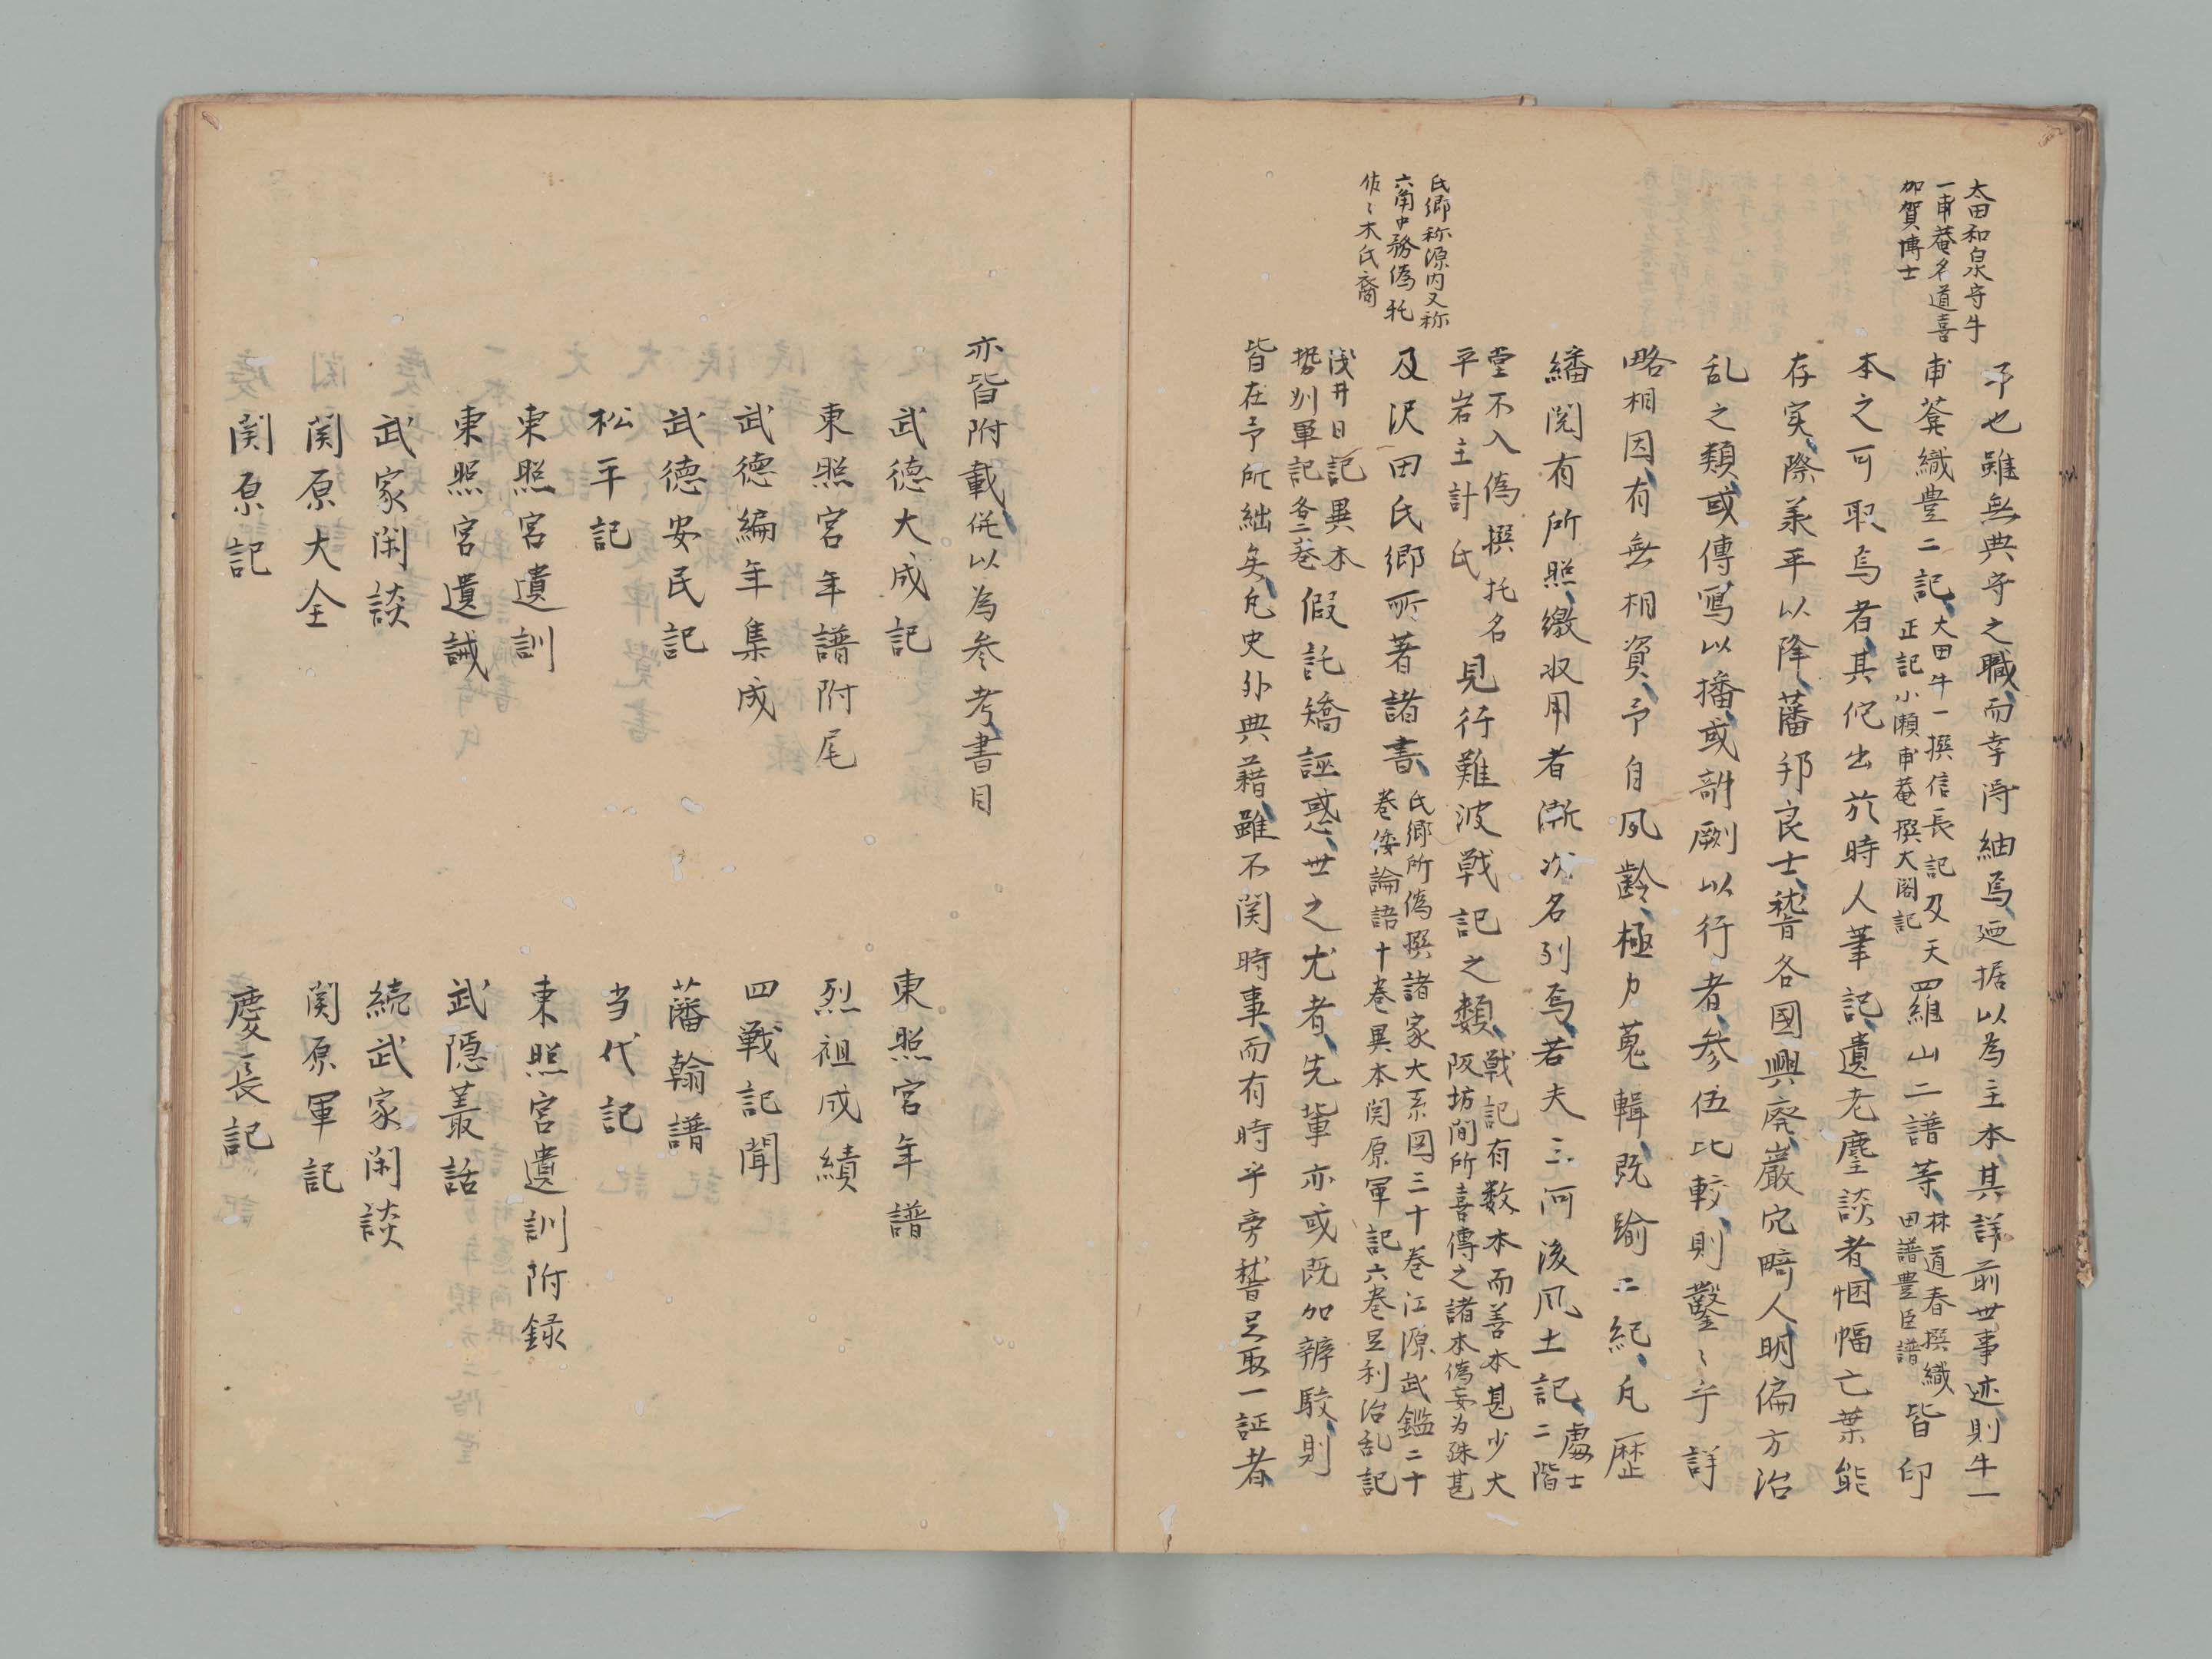 太田和泉守牛
一甫菴名道喜
加賀博士
予也雖無典守之職、而幸得紬焉、廼据以為主本、其詳前世事迹、則牛一
甫菴織豊二記、
大田牛一撰信長記及天
正記小瀬甫菴撰大閤記
四維山二譜等、
林道春撰織
田譜豊臣譜
皆印
本之可取焉者、其佗出於時人筆記、遺老麈談者、悃愊亡葉能
存実、際羕平以降、藩邦良士、嵆各國興廃、巖穴畸人、明偏方治
乱之類、或傳寫以播、或剞劂以行者、参伍比較、則鑿〻乎詳
略相因、有無相資、予自夙齡、極力蒐輯、既踰二紀、凡歴
繙閲有所照、繳収用者漸次名列焉、若夫三河後凮土記、
處士
二階
堂不入偽撰托名
平岩主計氏
見行難波戦記之類、
戦記有数本而善本甚少大
阪坊间所喜傳之諸本偽妄为殊甚
及沢田氏郷所著諸書、
氏郷所偽撰諸家大系図三十巻江源武鑑二十
巻倭論語十巻異本関原軍記六巻足利治乱記
氏郷称源内又称
六角中務偽托
佐〻木氏裔
浅井日記異本
勢州軍記各二巻
假託矯誣惑、世之尤者、先輩亦或既加辨駁、則
皆在予所絀矣、凢史外典籍、雖不関時事、而有時乎旁嵆足取一証者、
亦皆附載、併以為参考、書目
武徳大成記　東照宮年譜
東照宮年譜附尾　烈祖成績
武徳編年集成　四戦記聞
武徳安民記　藩翰譜
松平記　当代記
東照宮遺訓　東照宮遺訓附録
東照宮遺誡　武隠叢話
武家閑談　続武家閑談
関原大全　関原軍記
関原記　慶長記